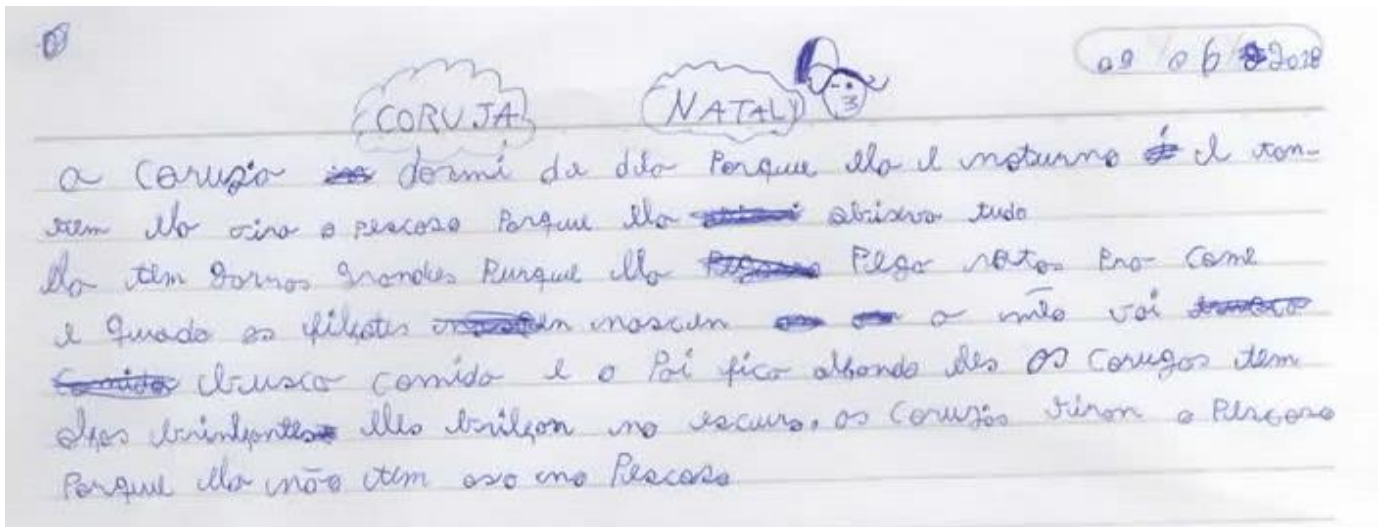 09 06 2018
CORUJA NATALY
a Coruga dormi de dia Porque ela e noturno e ton-
tem ela vira o pescoso Porque ela abiserva tudo
ela tem garras grandes Purque ela Pega ratos Pra Come
e quado os filhotes nascen a mãe vai
busca comida e o Pai fica olhando eles OS Corugas tem
olhos brinlhantes eles brilhon no escuro, as Corujas viron o Pescoso
Porque ela não tem oso no Pescoso